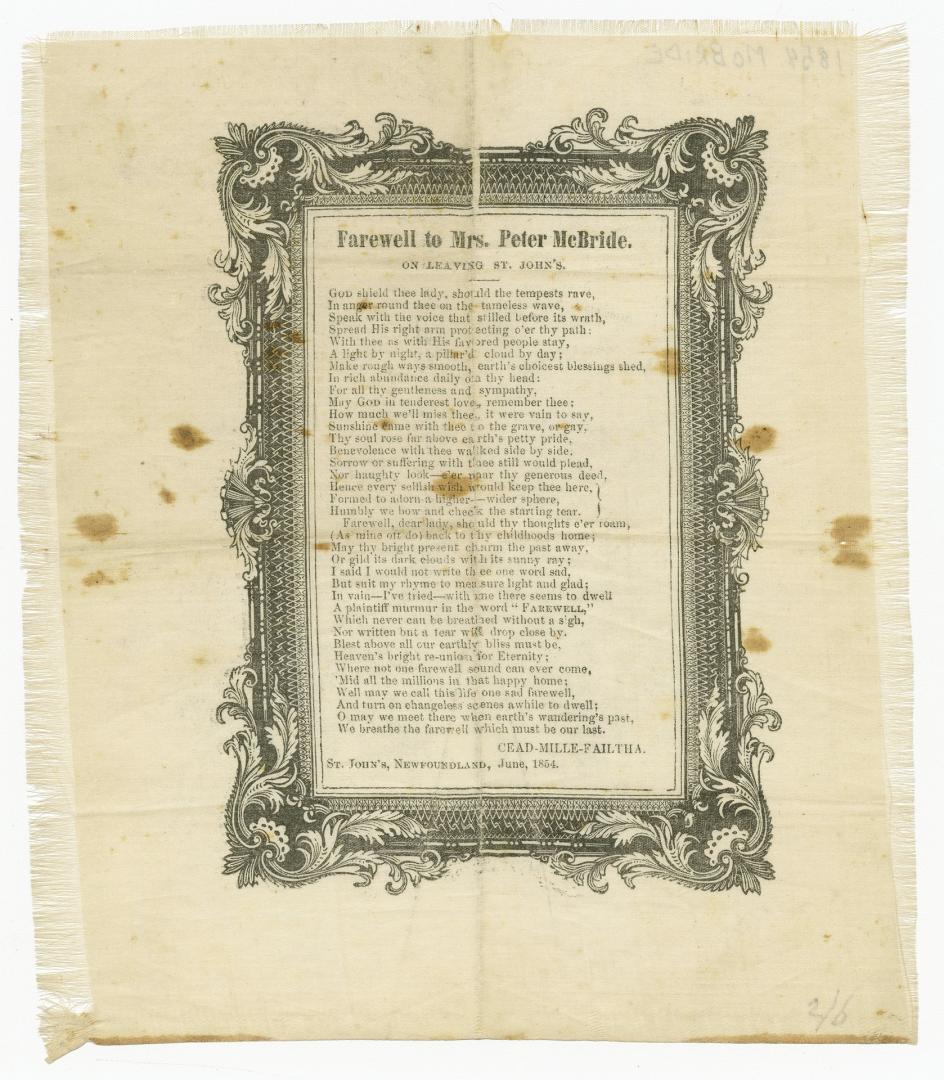 1854 McBRIDE
Farewell to Mrs. Peter McBride.
ON LEAVING ST. JOHN'S.
GOD shield thee lady, should the tempests rave,
In anger round thee on the tameless wave,
Speak with the voice that stilled before its wrath,
Spread His right arm protecting o'er thy path:
With thee as with His favored people stay,
A light by night, a pillar'd cloud by day;
Make rough ways smooth, earth's choicest blessings shed,
In rich abundance daily on thy head:
For all thy gentleness and sympathy,
May GOD in tenderest love, remember thee;
How much we'll miss thee, it were vain to say,
Sunshine came with thee to the grave, or gay,
Thy soul rose far above earth's petty pride,
Benevolence with thee walked side by side,
Sorrow or suffering with thee still would plead,
Nor haughty look—e'er mar thy generous deed,
Hence every selfish wish would keep thee here,
Formed to adorn a higher—wider sphere,
Humbly we bow and check the starting tear.
Farewell, dear lady, should thy thoughts e'er roam,
(As mine oft do) back to thy childhoods home;
May thy bright present charm the past away,
Or gild its dark clouds with its sunny ray;
I said I would not write thee one word sad,
But suit my rhyme to measure light and glad;
In vain—I've tried—with me there seems to dwell
A plaintiff murmur in the word "FAREWELL,"
Which never can be breathed without a sigh,
Nor written but a tear will drop close by.
Blest above all our earthly bliss must be,
Heaven's bright re-union for Eternity;
Where not one farewell sound can ever come,
'Mid all the millions in that happy home;
Well may we call this life one sad farewell,
And turn on changeless scenes awhile to dwell;
O may we meet there when earth's wandering's past,
We breathe the farewell which must be our last.
CEAD-MILLE-FAILTHA.
ST. JOHN'S, NEWFOUNDLAND, June, 1854.
2/6